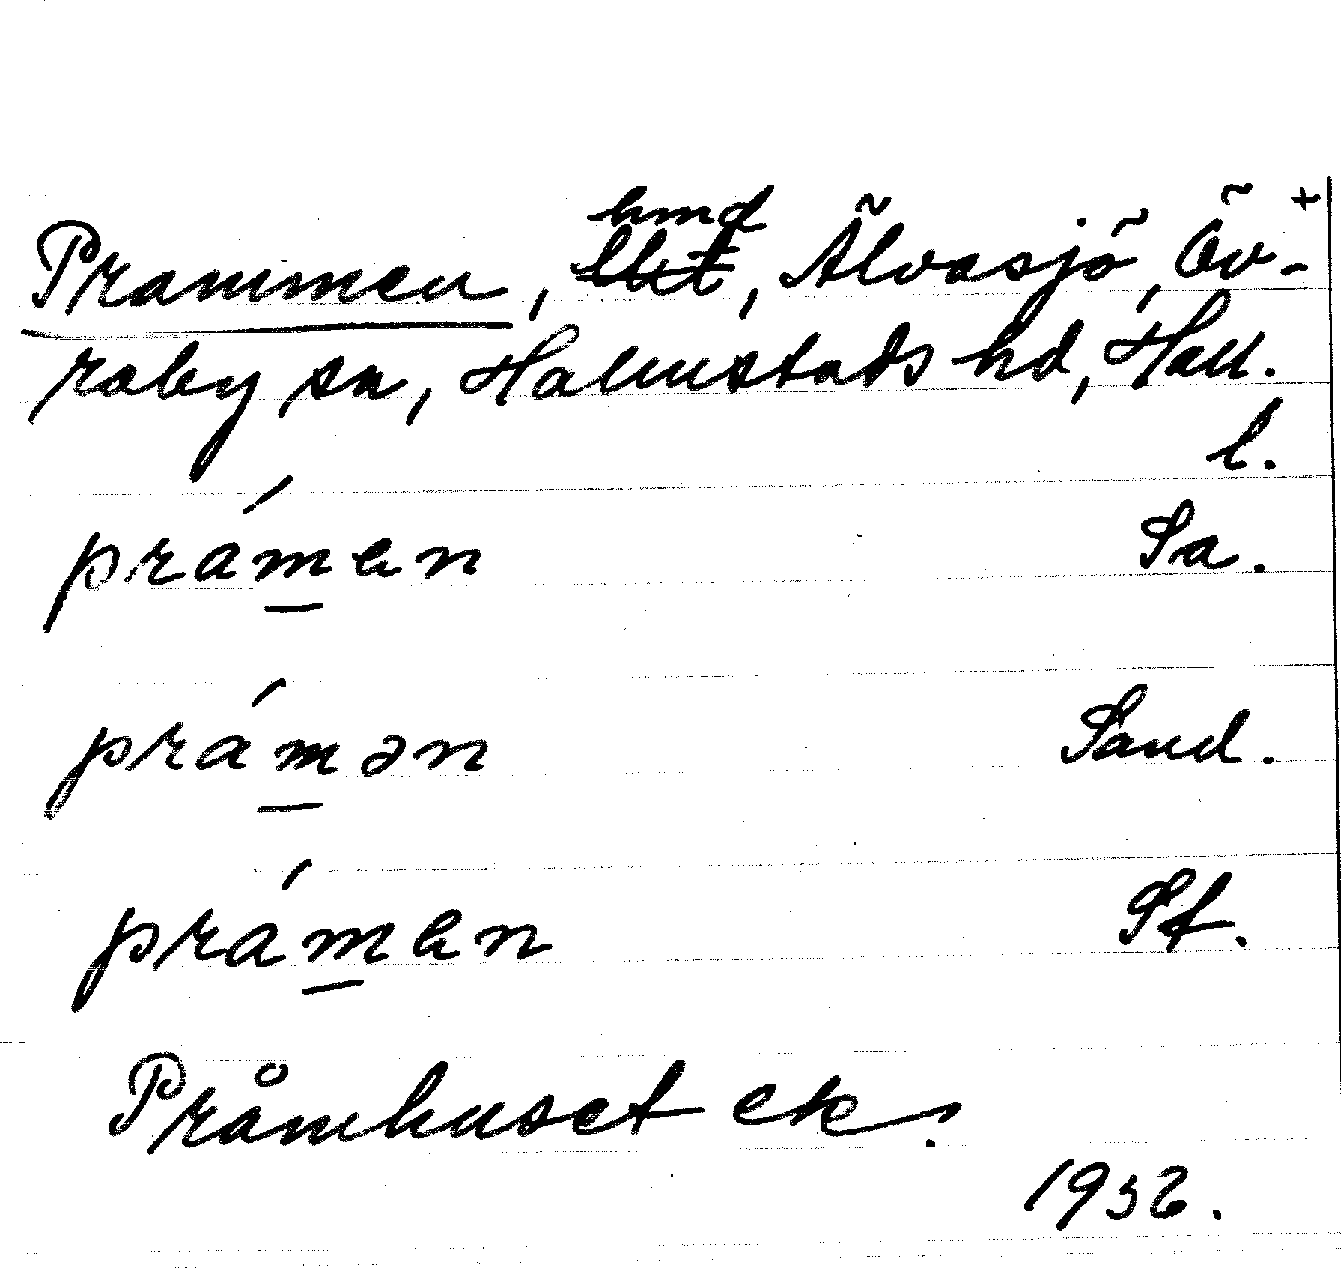 hmd
Prammen, lht, Älvasjö, Öv- +
raby sn, Halmstads hd, Hall.
l.
prámen Sa.
prámən Sand.
prámen Sf.
Pråmhuset ek.
1932.